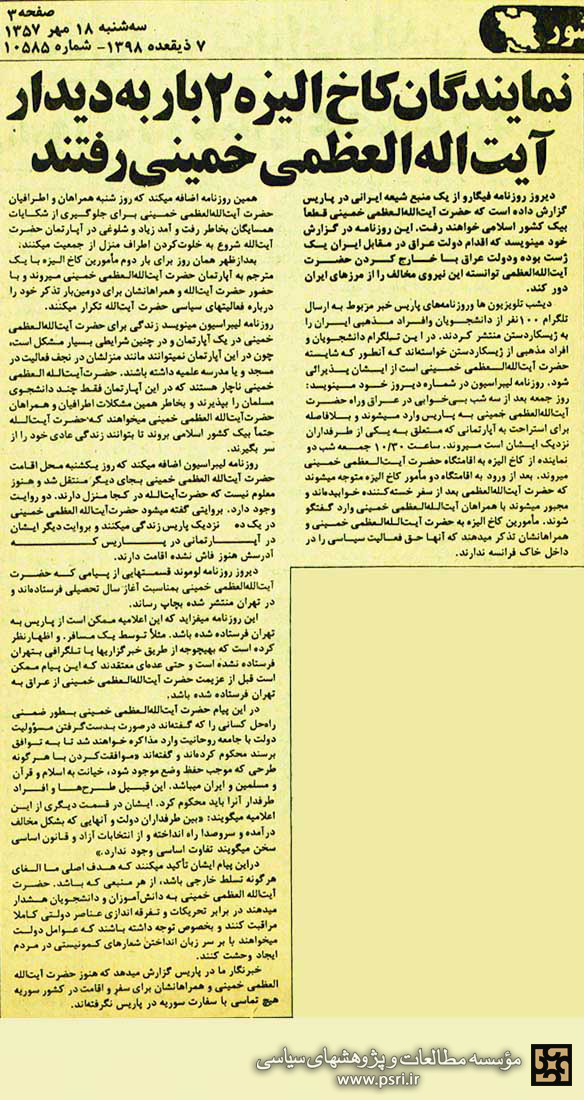 صفحه ۳
سه‌شنبه ۱۸ مهر ۱۳۵۷
۷ ذیقعده ۱۳۹۸- شماره ۱۰۵۸۵
نمایندگان کاخ الیزه ۲ بار به دیدار
آیت‌اله العظمی خمینی رفتند
دیروز روزنامه فیگارو از یک منبع شیعه ایرانی در پاریس
گزارش داده است که حضرت آیت‌الله‌العظمی خمینی قطعاً
بیک کشور اسلامی خواهند رفت. این روزنامه در گزارش
خود مینویسد که اقدام دولت عراق در مقابل ایران یک
ژست بوده ودولت عراق با خارج کردن حضرت
آیت‌الله‌العظمی توانسته این نیروی مخالف را از مرزهای ایران
دور کند.
دیشب تلویزیون ها وروزنامه‌های پاریس خبر مزبوط به ارسال
تلگرام ۱۰۰نفر از دانشجویان وافراد مذهبی ایران را
به ژیسکاردستن منتشر کردند. در این تلگرام دانشجویان و
افراد مذهبی از ژیسکاردستن خواسته‌اند که آنطور که شایسته
حضرت آیت‌الله‌العظمی خمینی است از ایشان پذیرائی
شود. روزنامه لیبراسیون در شماره دیروز خود مینویسد:
روز جمعه بعد از سه شب بی‌خوابی در عراق وراه حضرت
آیت‌الله‌العظمی خمینی به پاریس وارد میشوند و بلافاصله
برای استراحت به آپارتمانی که متعلق به یکی از طرفداران
نزدیک ایشان است میروند. ساعت ۱۰/۳۰ جمعه شب دو
نماینده از کاخ الیزه به اقامتگاه حضرت آیت‌الله‌العظمی خمینی
میروند. بعد از ورود به اقامتگاه دو مأمور کاخ الیزه متوجه میشوند
که حضرت آیت‌الله‌العظمی بعد از سفر خسته‌کننده خوابیده‌اند و
مجبور میشوند با همراهان آیت‌الله‌العظمی خمینی وارد گفتگو
شوند. مأمورین کاخ الیزه به حضرت آیت‌الله‌العظمی خمینی و
همراهانشان تذکر میدهند که آنها حق فعالیت سیاسی را در
داخل خاک فرانسه ندارند.
همین روزنامه اضافه میکند که روز شنبه همراهان و اطرافیان
حضرت آیت‌الله‌العظمی خمینی برای جلوگیری از شکایات
همسایگان بخاطر رفت و آمد زیاد و شلوغی در آپارتمان حضرت
آیت‌الله شروع به خلوت‌کردن اطراف منزل از جمعیت میکنند.
بعدازظهر همان روز برای بار دوم مأمورین کاخ الیزه با یک
مترجم به آپارتمان حضرت آیت‌الله‌العظمی خمینی میروند و با
حضور حضرت آیت‌الله و همراهانشان برای دومین‌بار تذکر خود را
درباره فعالیتهای سیاسی حضرت آیت‌الله تکرار میکنند.
روزنامه لیبراسیون مینویسد زندگی برای حضرت آیت‌الله‌العظمی
خمینی در یک آپارتمان و در چنین شرایطی بسیار مشکل است،
چون در این آپارتمان نمیتوانند مانند منزلشان در نجف فعالیت در
مسجد و یا مدرسه علمیه داشته باشند. حضرت‌آیت‌الله العظمی
خمینی ناچار هستند که در این آپارتمان فقط چند دانشجوی
مسلمان را بپذیرند و بخاطر همین مشکلات اطرافیان و همراهان
حضرت‌آیت الله العظمی خمینی میخواهند که‌حضرت آیت‌الله
حتماً بیک کشور اسلامی بروند تا بتوانند زندگی عادی خود را از
سر بگیرند.
روزنامه لیبراسیون اضافه میکند که روز یکشنبه محل اقامت
حضرت آیت‌الله العظمی خمینی بجای دیگر منتقل شد و هنوز
معلوم نیست که حضرت آیت‌الله در کجا منزل دارند. دو روایت
وجود دارد. بروایتی گفته میشود حضرت‌آیت‌الله العظمی خمینی
در یک ده نزدیک پاریس زندگی میکنند و بروایت دیگر ایشان
در آپارتمانی در پاریس که
آدرسش هنوز فاش نشده اقامت دارند.
دیروز روزنامه لوموند قسمتهایی از پیامی که حضرت
آیت‌الله‌العظمی خمینی بمناسبت آغاز سال تحصیلی فرستاده‌اند و
در تهران منتشر شده بچاپ رساند.
این روزنامه میفزاید که این اعلامیه ممکن است از پاریس به
تهران فرستاده شده باشد. مثلاً توسط یک مسافر. و اظهارنظر
کرده است که بهیچوجه از طریق خبرگزاریها یا تلگرافی بتهران
فرستاده نشده است و حتی عده‌ای معتقدند که این پیام ممکن
است قبل از عزیمت حضرت آیت‌الله‌العظمی خمینی از عراق به
تهران فرستاده شده باشد.
در این پیام حضرت آیت‌الله‌العظمی خمینی بطور ضمنی
راه‌حل کسانی را که گفته‌اند درصورت بدست‌گرفتن مسؤولیت
دولت با جامعه روحانیت وارد مذاکره خواهند شد تا به توافق
برسند محکوم کرده‌اند و گفته‌اند «موافقت‌کردن با هرگونه
طرحی که موجب حفظ وضع موجود شود، خیانت به اسلام و قرآن
و مسلمین و ایران میباشد. این قبیل طرح‌ها و افراد
طرفدار آنرا باید محکوم کرد. ایشان در قسمت دیگری از این
اعلامیه میگویند: «بین طرفداران دولت و آنهایی که بشکل مخالف
درآمده و سروصدا راه انداخته و از انتخابات آزاد و قانون اساسی
سخن میگویند تفاوت اساسی وجود ندارد.»
دراین پیام ایشان تأکید میکنند که هدف اصلی ما الغای
هرگونه تسلط خارجی باشد، از هر منبعی که باشد. حضرت
آیت‌الله العظمی خمینی به دانش‌آموزان و دانشجویان هشدار
میدهند در برابر تحریکات و تفرقه اندازی عناصر دولتی کاملا
مراقبت کنند و بخصوص توجه داشته باشند که عوامل دولت
میخواهند با بر سر زبان انداختن شعارهای کمونیستی در مردم
ایجاد وحشت کنند.
خبرنگار ما در پاریس گزارش میدهد که هنوز حضرت آیت‌الله
العظمی خمینی و همراهانشان برای سفر و اقامت در کشور سوریه
هیچ تماسی با سفارت سوریه در پاریس نگرفته‌اند.
مؤسسه مطالعات و پژوهشهای سیاسی
www.psri.ir